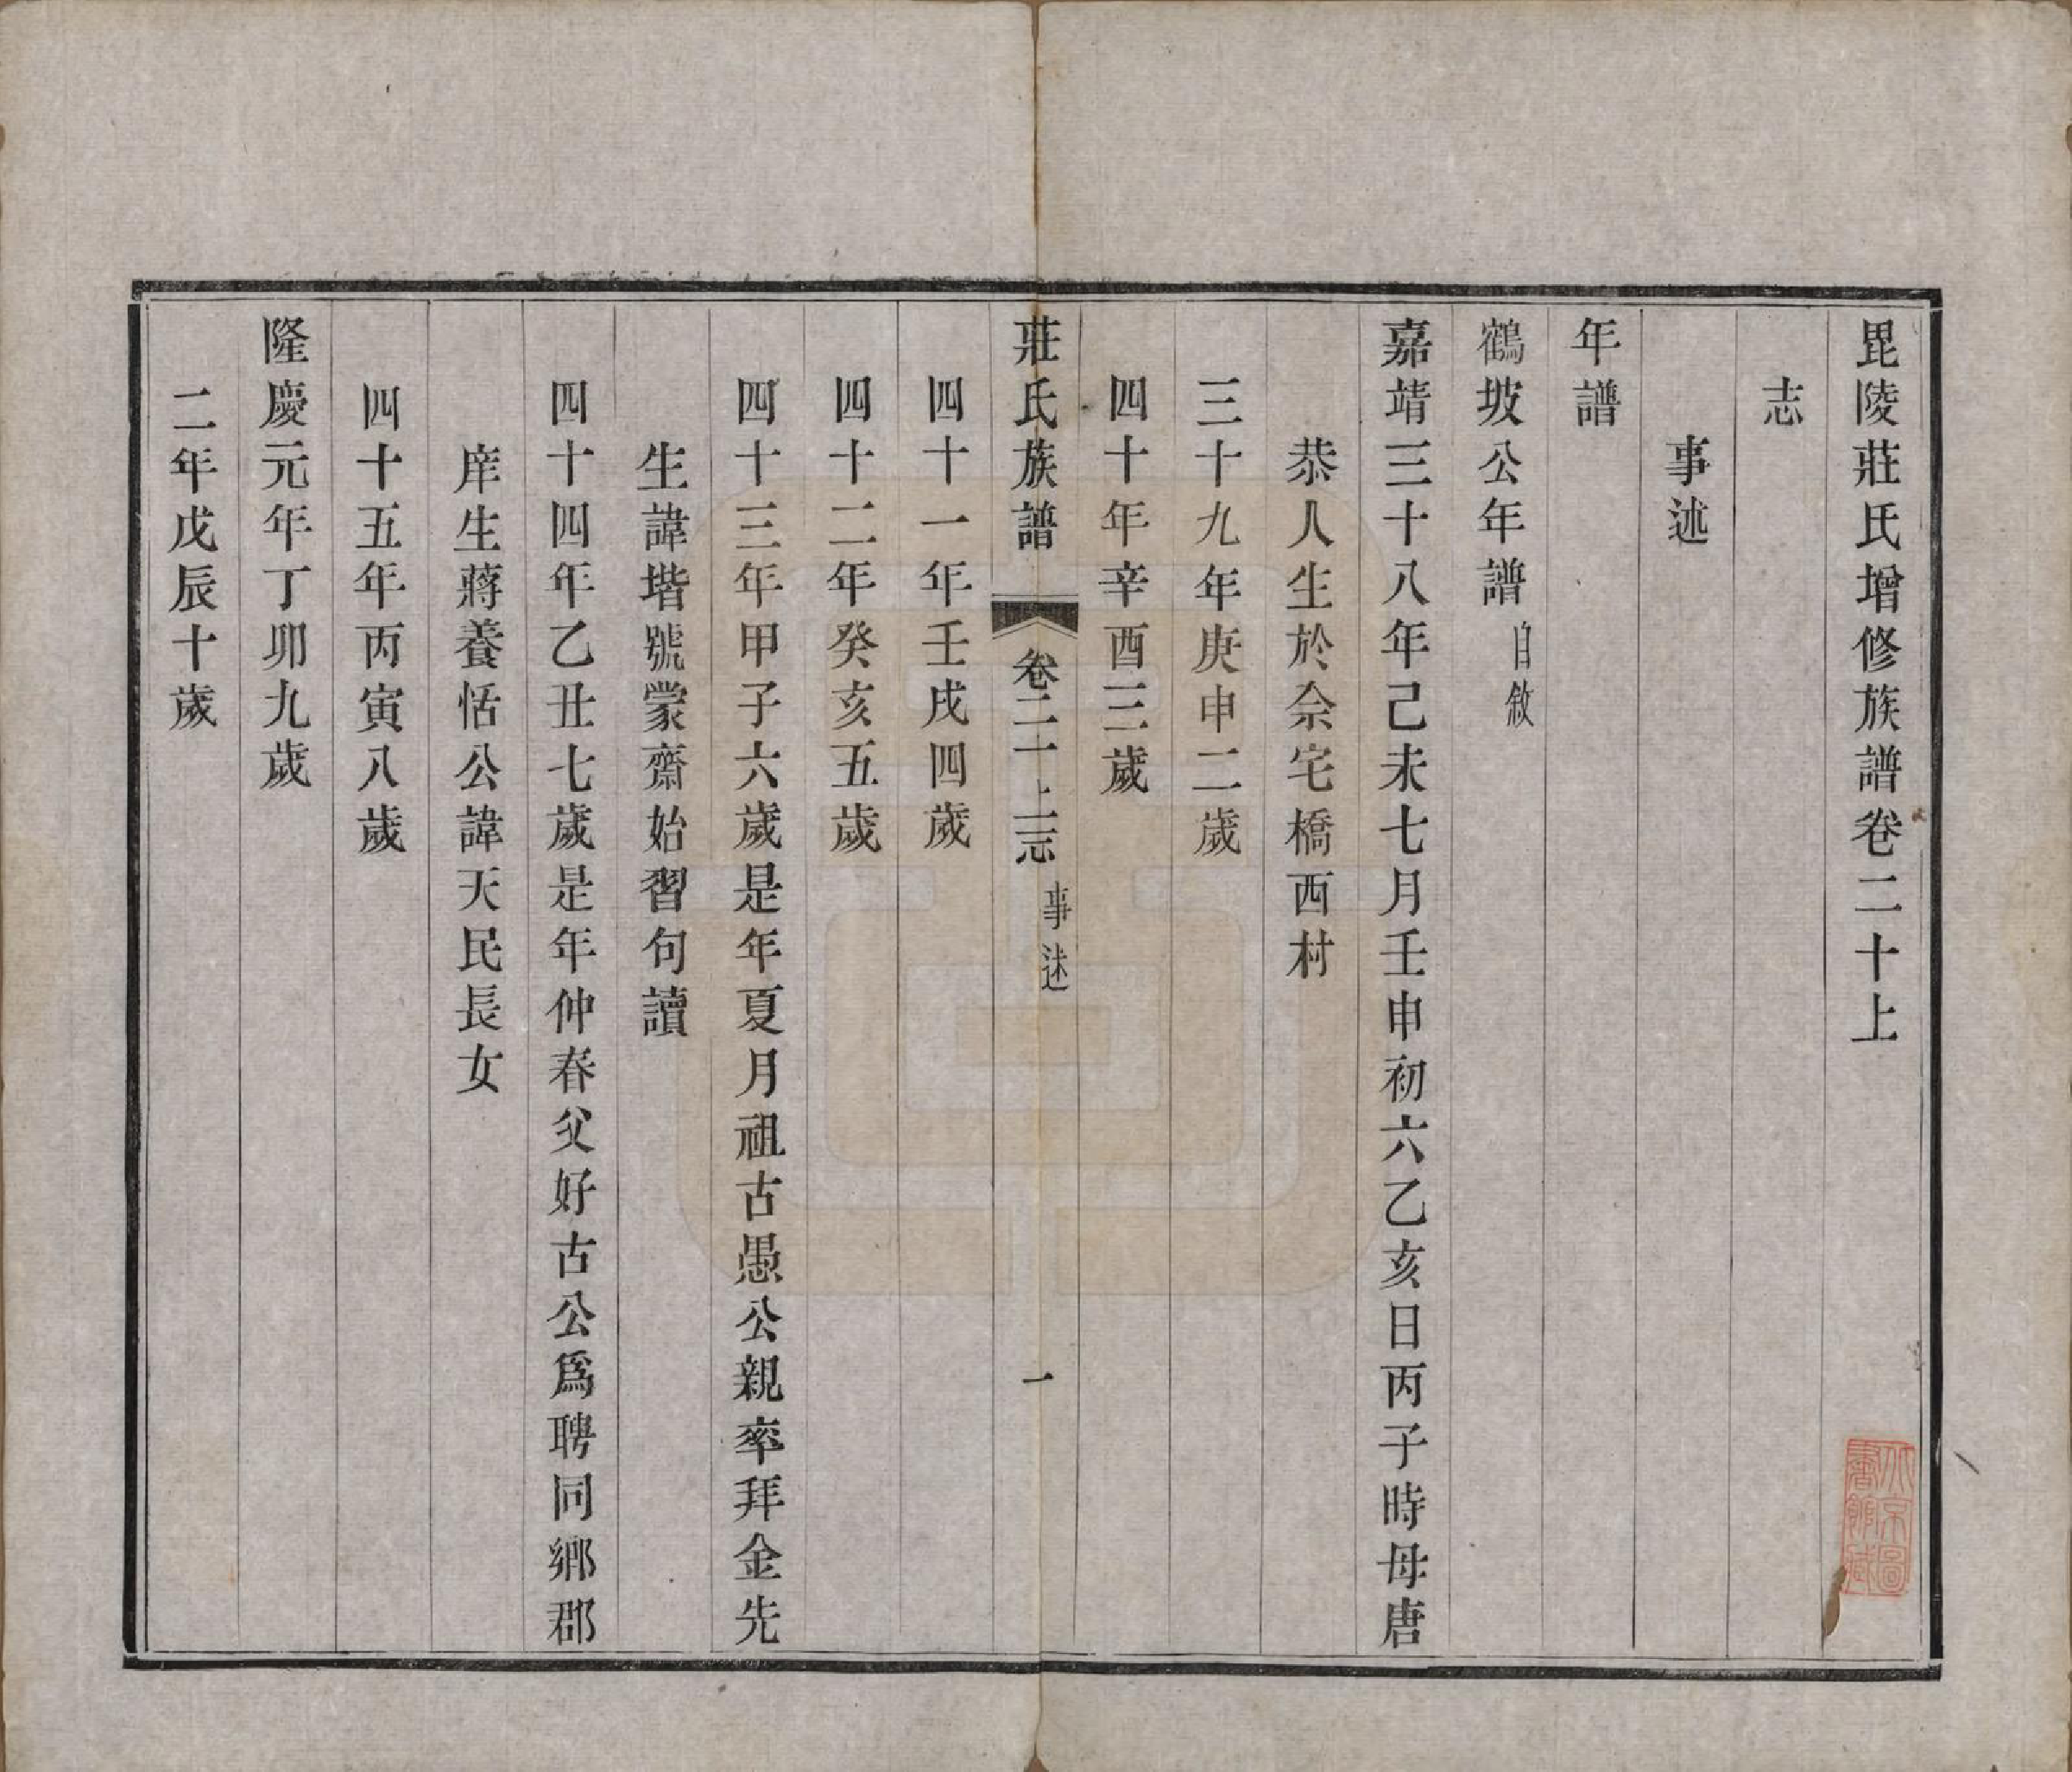 毘陵莊氏增修族譜卷二十上
志
事述
年譜
鶴坡公年譜 自敘
嘉靖三十八年己未七月壬申初六乙亥日丙子時母唐
恭人生於佘宅橋西村
三十九年庚申二歲
四十年辛酉三歲
莊氏族譜 卷二十上志 事述 一
四十一年壬戌四歲
四十二年癸亥五歲
四十三年甲子六歲是年夏月祖古愚公親率拜金先
生諱堦號蒙齋始習句讀
四十四年乙丑七歲是年仲春父好古公爲聘同鄉郡
庠生蔣養恬公諱天民長女
四十五年丙寅八歲
隆慶元年丁卯九歲
二年戊辰十歲
北京圖書館藏